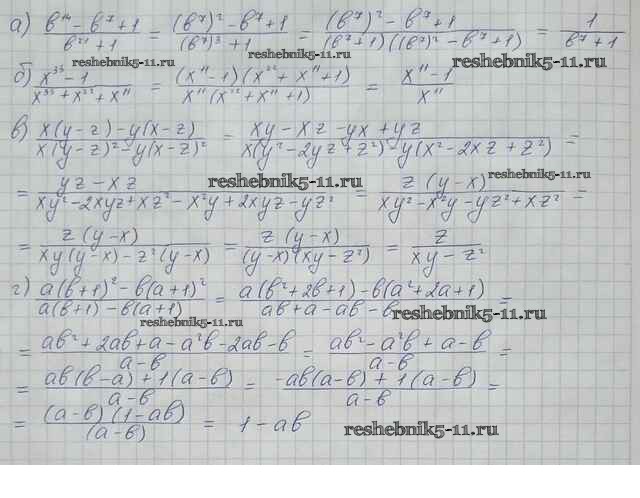 а) (в¹⁴ - в⁷ + 1)/(в²¹ + 1) = ((в⁷)² - в⁷ + 1)/((в⁷)³ + 1) = ((в⁷)² - в⁷ + 1)/((в⁷+1)((в⁷)² - в⁷ + 1)) = 1/(в⁷ + 1)
reshebnik5-11.ru reshebnik5-11.ru
б) (x³³ - 1)/(x³³ + x²² + x¹¹) = ((x¹¹ - 1)(x²² + x¹¹ + 1))/(x¹¹(x²² + x¹¹ + 1)) = (x¹¹ - 1)/x¹¹
reshebnik5-11.ru
в) (x(y-z) - y(x-z))/(x(y-z)² - y(x-z)²) = (xy - xz - yx + yz)/(x(y² - 2yz + z²) - y(x² - 2xz + z²)) =
reshebnik5-11.ru reshebnik5-11.ru
= (yz - xz)/(xy² - 2xyz + xz² - x²y + 2xyz - yz²) = (z(y-x))/(xy² - x²y - yz² + xz²) =
= (z(y-x))/(xy(y-x) - z²(y-x)) = (z(y-x))/((y-x)(xy - z²)) = z/(xy - z²)
г) (a(в+1)² - в(a+1)²)/(a(в+1) - в(a+1)) = (a(в² + 2в + 1) - в(a² + 2a + 1))/(aв + a - aв - в) =
reshebnik5-11.ru reshebnik5-11.ru
= (aв² + 2aв + a - a²в - 2aв - в)/(a - в) = (aв² - a²в + a - в)/(a - в) =
= (aв(в-a) + 1(a-в))/(a - в) = (-aв(a-в) + 1(a-в))/(a - в) =
= ((a-в)(1-aв))/((a-в)) = 1 - aв
reshebnik5-11.ru